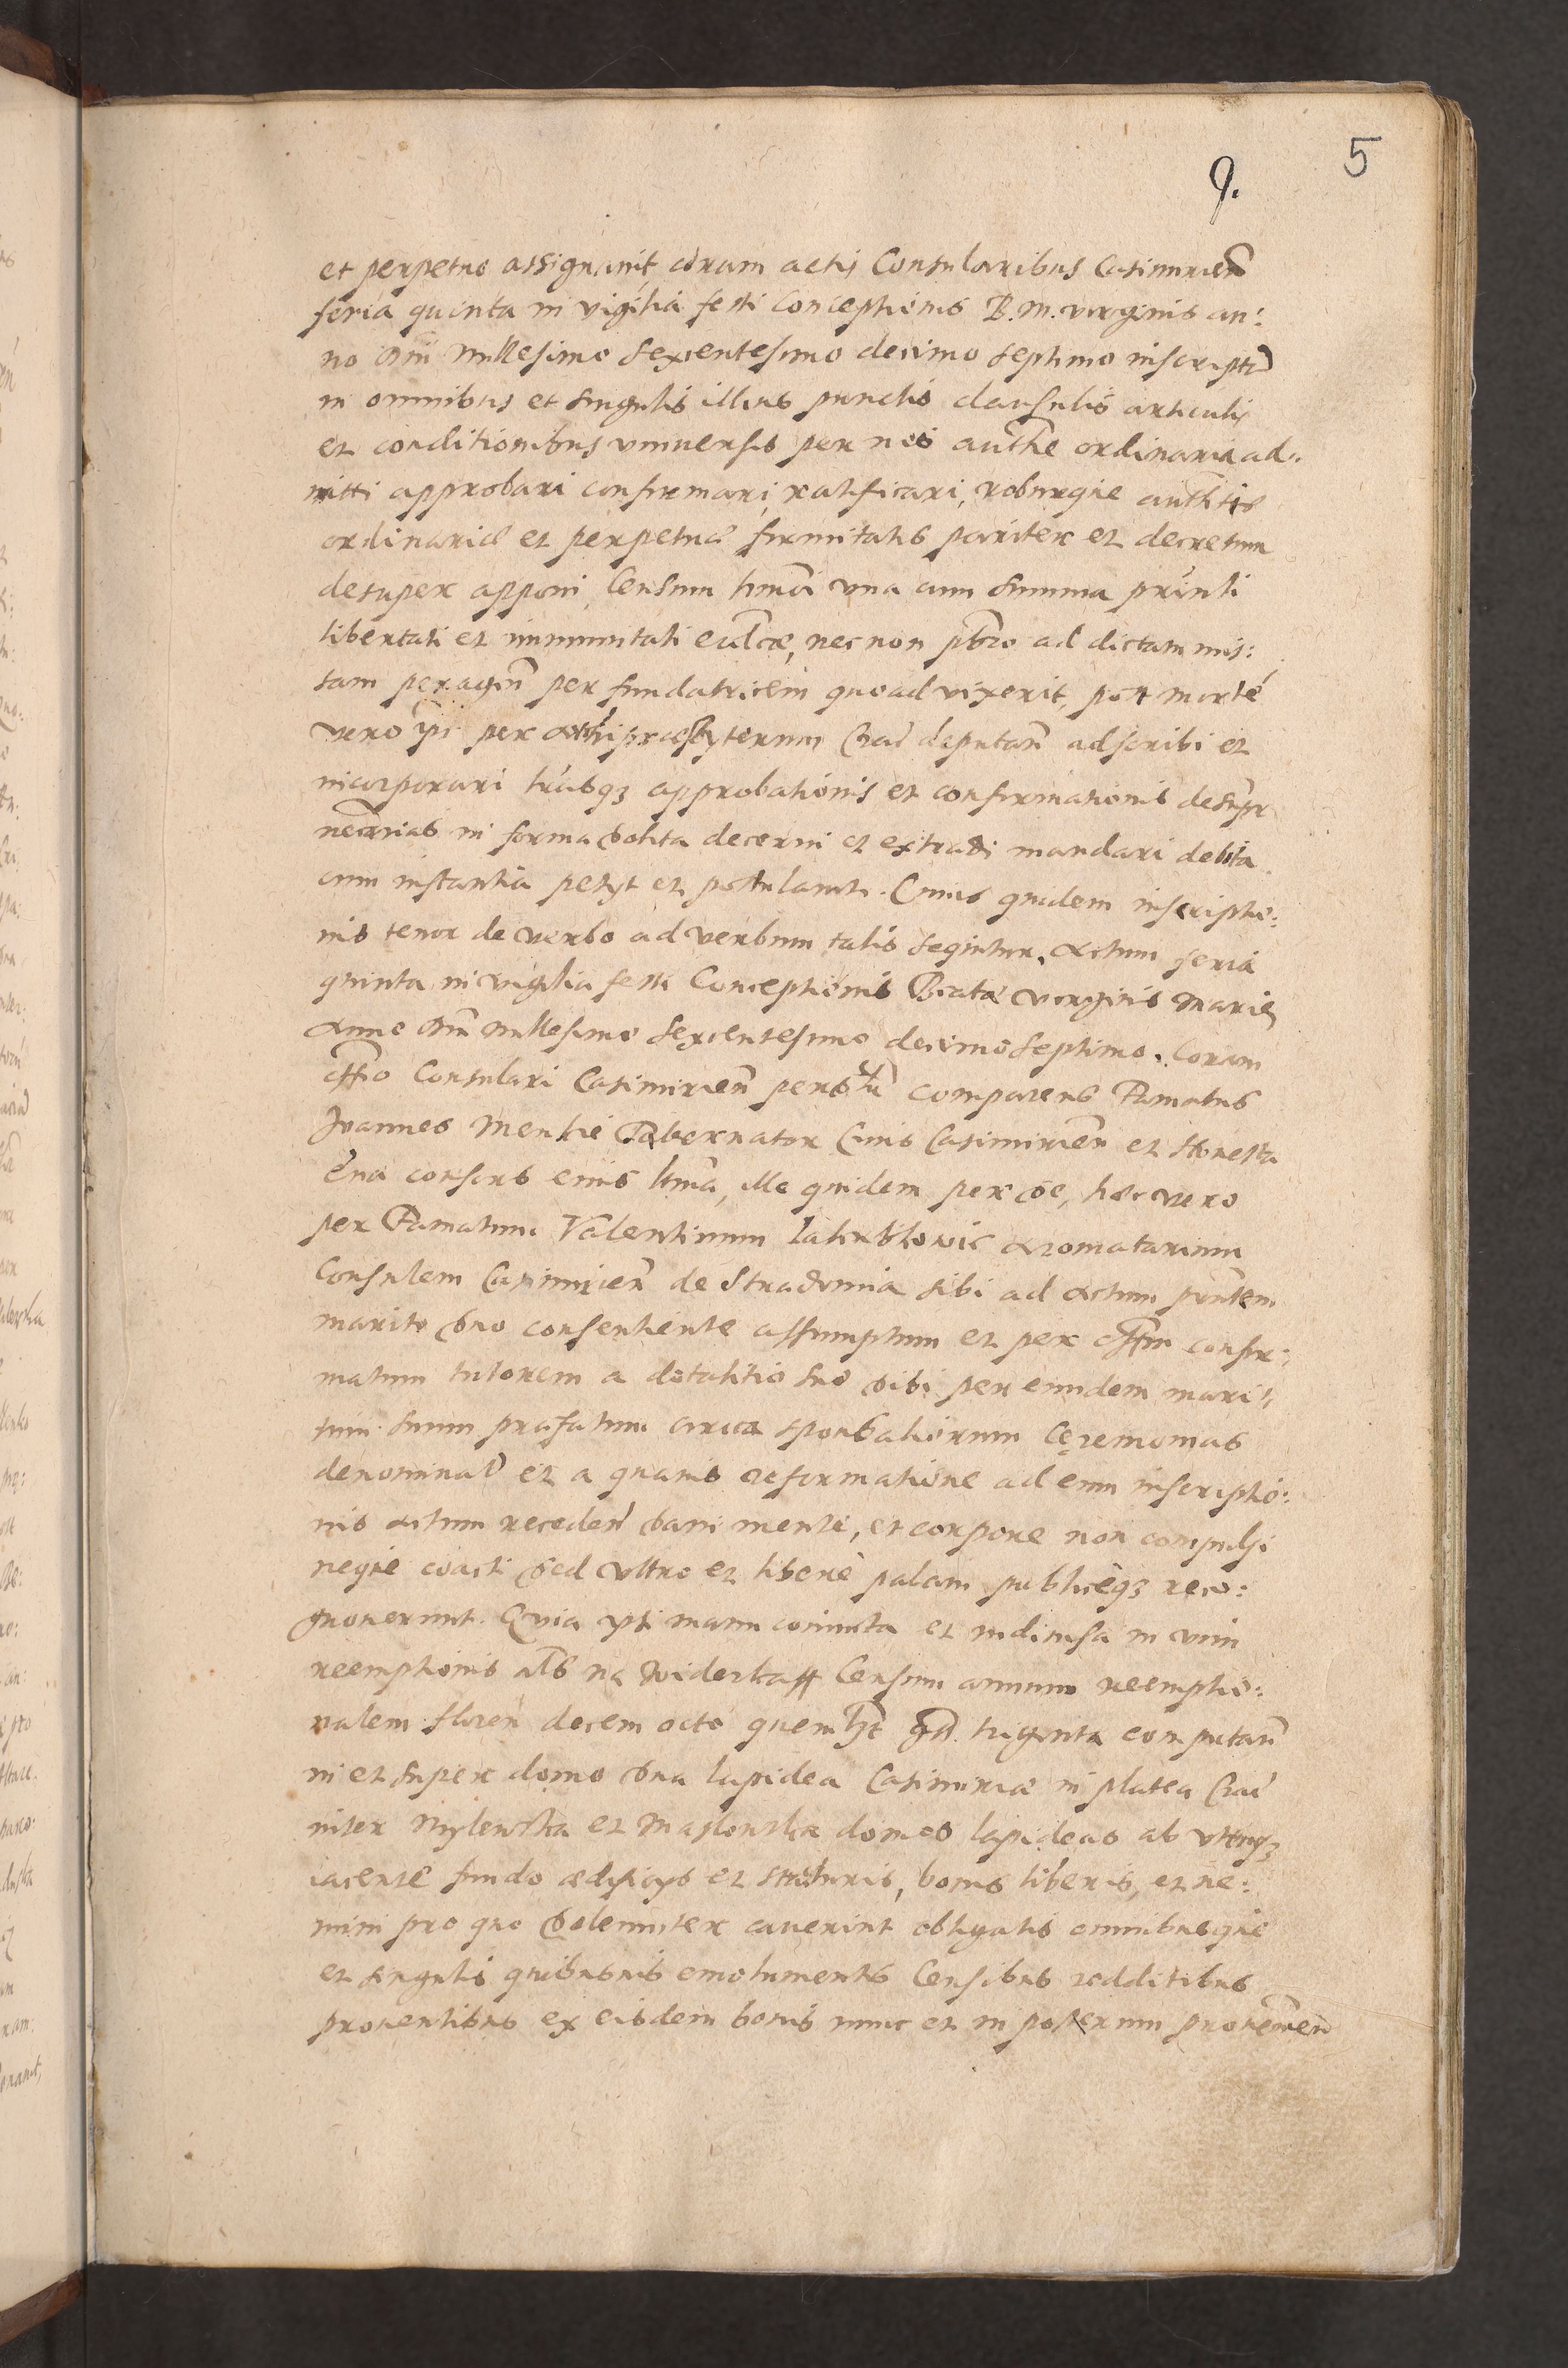 5
9.
et perpetuo assignauit, coram actis Consularibus Casimirien̄
feria quinta in vigilia festi Conceptionis B. M. virginis an:
no Dn̄i Millesimo Sexcentesimo decimo septimo inscriptū
in omnibus et singulis illius punctis clausulis articulis
et conditionibus vniuersis per nos auth̄e ordinaria ad:
mitti approbari confirmari, ratificari, roburque auth̄tis
ordinariæ et perpetuæ firmitatis pariter et decretum
desuper apponi, Censum hmōi vna cum summa prin̄li
libertati et immunitati eccl̄cæ, nec non pb̄ro ad dictam mis:
sam peragen̄ per fundatricem quoad vixerit, post morté
vero ip̄i per Archipræsbyterum Craċ deputan̄ adscribi et
incorporari l̄rasqȝ approbationis et confirmationis desup̄r
nec̄rias in forma solita decerni et extradi mandari debita
cum instantia petyt et postulauit. Cuius quidem inscriptio:
nis tenor de verbo ad verbum talis seqintur. Actum feria
quinta in vigilia festi Conceptionis Beatæ virginis Mariæ
Anno Dn̄i Millesimo Sexcentesimo decimo septimo. Coram
off̄o Consulari Casimirien̄ personal̄r comparens Famatus
Joannes Menkie Tabernator Ciuis Casimirien̄ et Honesta
Eua consors eius l̄tima, ille quidem per se, hæc vero
per Famatum Valentinum aromatarium
Consulem Casimirien̄ de Stradomia sibi ad Actum pn̄tem
marito suo consentiente assumptum et per off̄m confir:
matum tutorem a dotalitio suo sibi per eundem mari:
tum suum præfatum circa sponsaliorum Ceremonias
denominat̄ et a quauis reformatione ad eum inscriptio:
nis actum receden̄ sani mente, et corpore non compulsi
neque coacti sed vltro et liberè palam publicèqȝ reco:
gnouerunt. Quia ipsi manu coniuncta et indiuisa in vim
reemptionis al̄s na Widerkaff Censum annuum reemptio:
nalem floren̄ decem octo quemlibet gr̄. triginta computan̄
in et super domo sua lapidea Casimiriæ in platea Craċ
inter Mylenska et Maslonska domos lapideas ab vtrinqȝ
iacente fundo ædificys et structuris, bonis liberis, et ne:
mini pro quo solemniter cauerint obligatis omnibusque
et singulis quibusuis emolumentis Censibus redditibus
prouentibus ex eisdem bonis nunc et in posterum prouenien̄